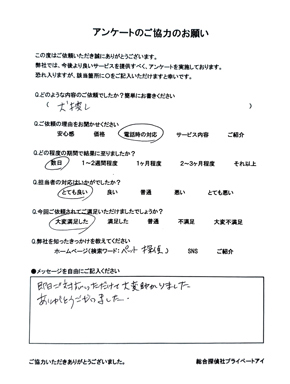 アンケートのご協力のお願い
この度はご依頼いただき誠にありがとうございます。
弊社では、今後より良いサービスを提供すべく、アンケートを実施しております。
恐れ入りますが、該当箇所に〇をご記入いただけますと幸いです。
Q.どのような内容のご依頼でしたか？簡単にお書きください
( 犬捜し )
Q.ご依頼の理由をお聞かせください
安心感 価格 電話時の対応 サービス内容 ご紹介
Q.どの程度の期間で結果に至りましたか？
数日 1～2週間程度 1ヶ月程度 2～3ヶ月程度 それ以上
Q.担当者の対応はいかがでしたか？
とても良い 良い 普通 悪い とても悪い
Q.今回ご依頼されてご満足いただけましたでしょうか？
大変満足した 満足した 普通 不満足 大変不満足
Q.弊社を知ったきっかけを教えてください
ホームページ(検索ワード: ペット 探偵) SNS ご紹介
●メッセージを自由にご記入ください
即日ご対応いただけて大変助かりました
ありがとうございました.
ご協力いただきありがとうございました。 総合探偵社プライベートアイ